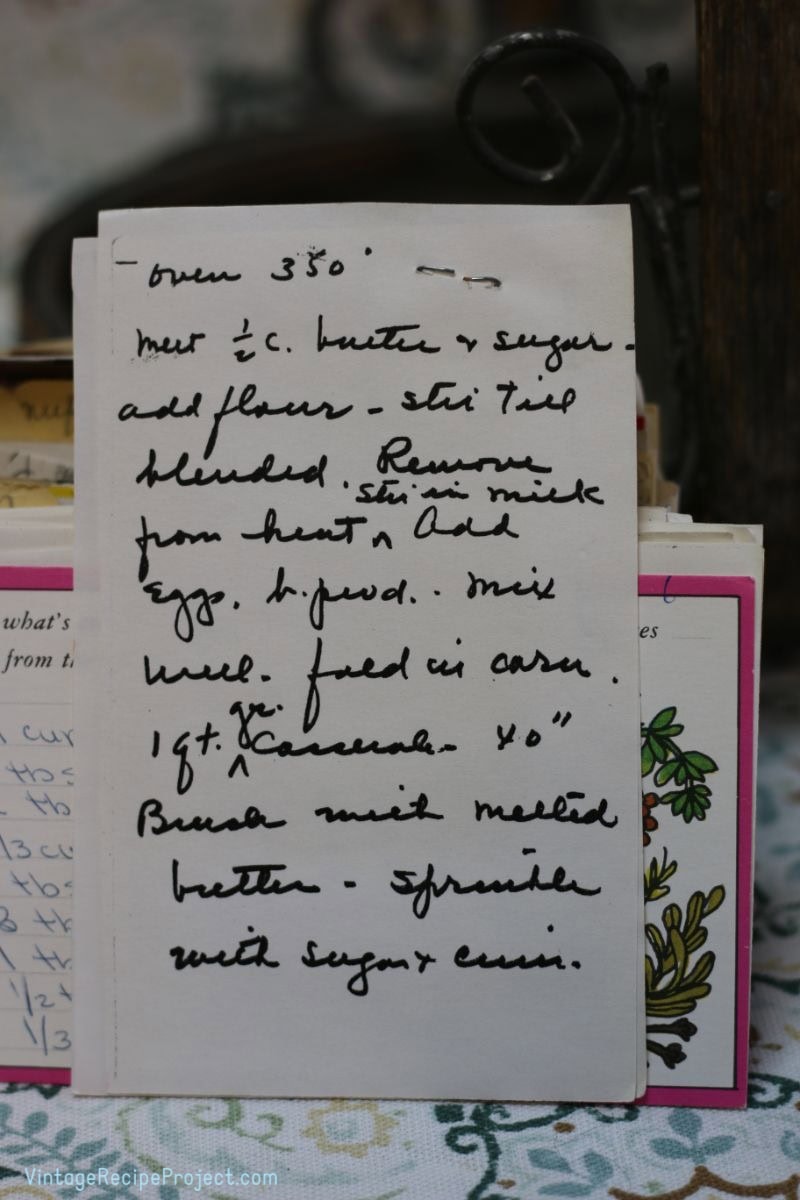 - oven 350°
Melt 1/2 c. butter & sugar -
add flour - stir till
blended. Remove
stir in milk
from heat ^ Add
Eggs, b. pwd. . Mix
well. fold in corn.
gr.
1 qt. ^ Casserole - 40"
Brush with melted
butter - sprinkle
with sugar & cinn.
what's
from t
1 cu
tbs
tb
/3 cu
tbs
tb
1 tb
1/2 t
1/3
es
6
VintageRecipeProject.com